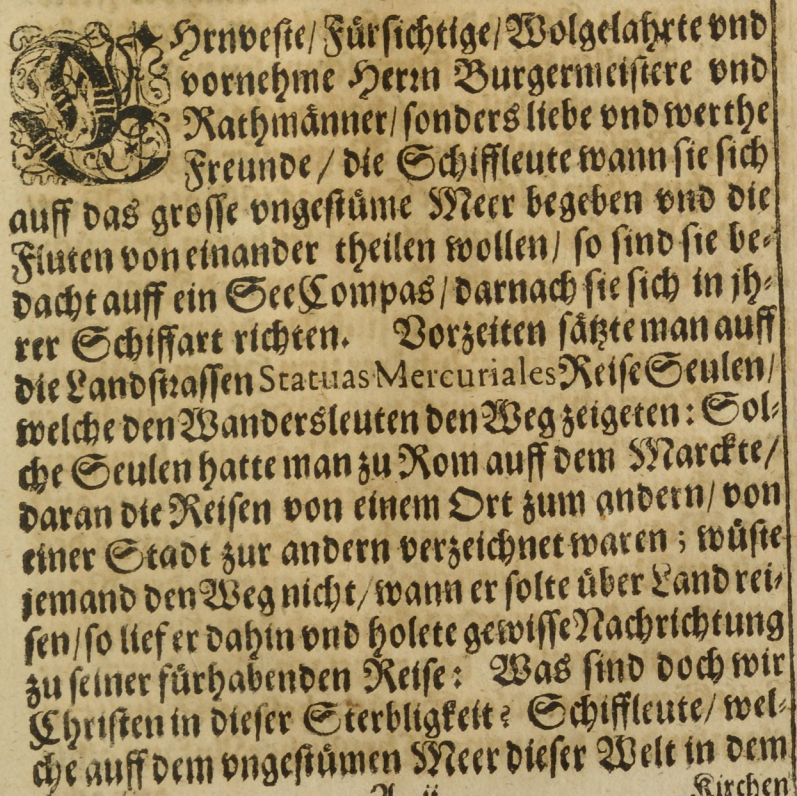 EHrnveste/ Fürsichtige/ Wolgelahrte vnd
vornehme Herrn Burgermeistere vnd
Rathmänner/ sonders liebe vnd werthe
Freunde / die Schiffleute wann sie sich
auff das grosse vngestüme Meer begeben vnd die
Fluten von einander theilen wollen/ so sind sie be-
dacht auff ein See Compas/ darnach sie sich in jh-
rer Schiffart richten. Vorzeiten sätzte man auff
die Landstrassen Statuas Mercuriales Reise Seulen/
welche den Wandersleuten den Weg zeigeten: Sol-
che Seulen hatte man zu Rom auff dem Marckte/
daran die Reisen von einem Ort zum andern/ von
einer Stadt zur andern verzeichnet waren ; wüste
jemand den Weg nicht/ wann er solte über Land rei-
sen/ so lief er dahin vnd holete gewisse Nachrichtung
zu seiner fürhabenden Reise: Was sind doch wir
Christen in dieser Sterbligkeit? Schiffleute/ wel-
che auff dem vngestümen Meer dieser Welt in dem
A ij Kirchen